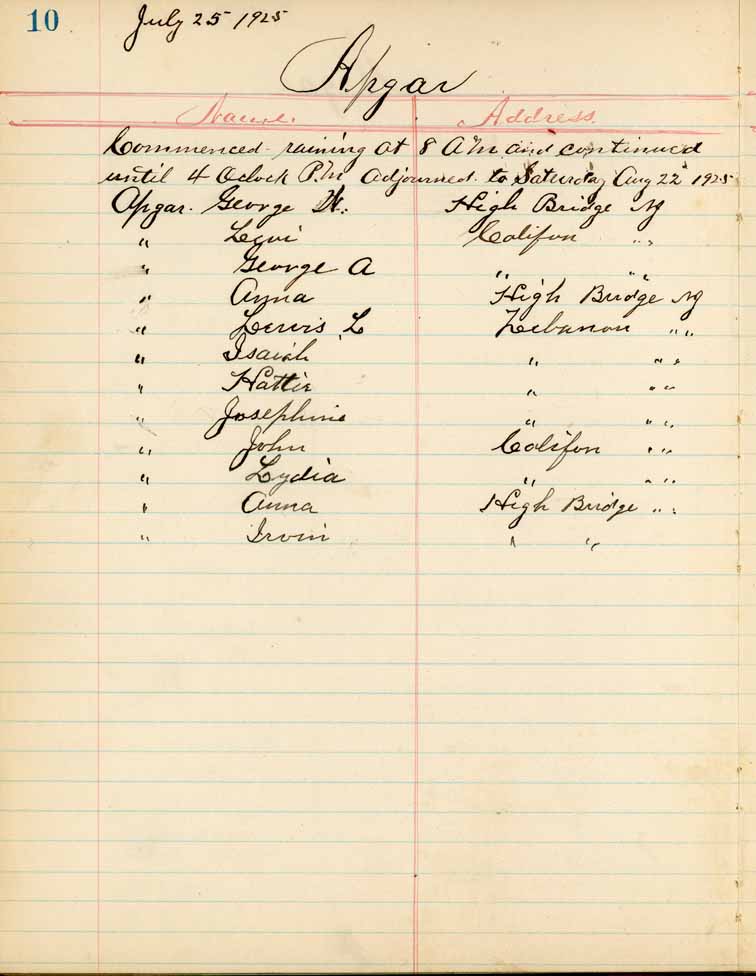 10 July 25 1925
Apgar
Name. Address.
Commenced raining at 8 A.M and continued
until 4 Oclock P.M Adjourned to Saturday Aug 22 1925
Apgar. George W. High Bridge NJ
" Levi Califon " "
" George A " "
" Anna High Bridge NJ
" Lewis L Lebanon " "
" Isaiah " " "
" Hattie " " "
" Josephine " " "
" John Califon " "
" Lydia " " "
" Anna High Bridge " "
" Irvin " "